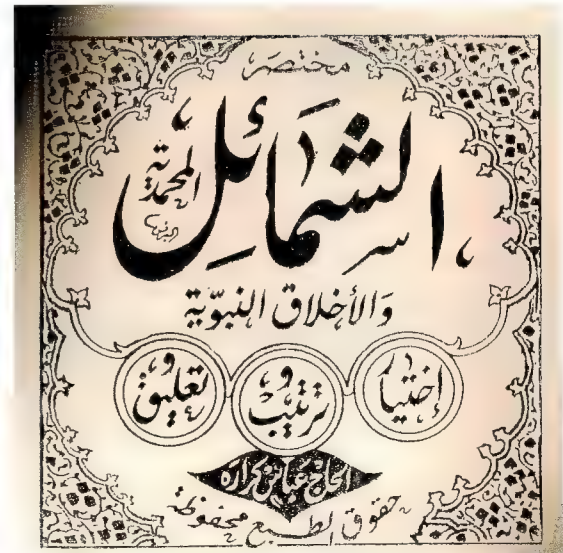 مختصر
الشمائل المحمدية
والأخلاق النبوية
إختيار وترتيب وتعليق
الحاج عباس كرارة
حقوق الطبع محفوظة